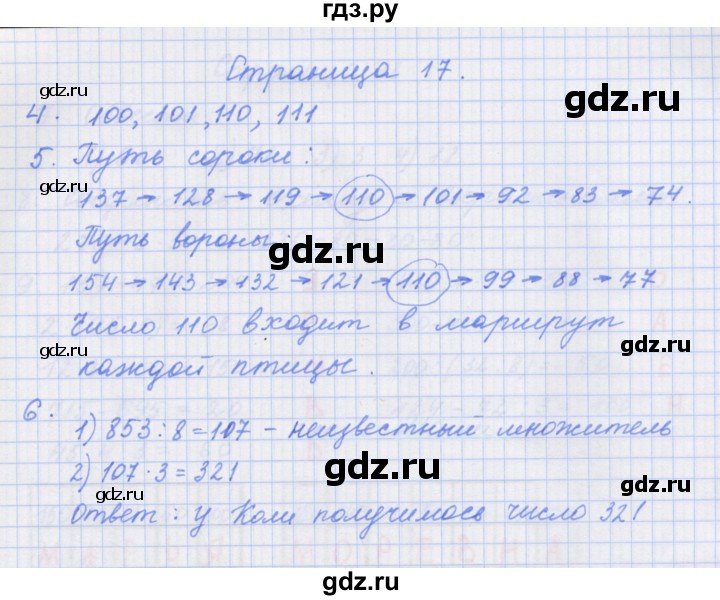 гдз.ру
Страница 17.
gdz.ru
gdz.ru
gdz.ru
4. 100, 101, 110, 111
5. Путь сороки:
gdz.ru
gdz.ru
137 → 128 → 119 → 110 → 101 → 92 → 83 → 74.
Путь вороны:
gdz.ru
154 → 143 → 132 → 121 → 110 → 99 → 88 → 77
Число 110 входит в маршрут
gdz.ru
gdz.ru
каждой птицы.
6.
gdz.ru
1) 853:8=107 - неизвестный множитель
2) 107·3=321
gdz.ru
gdz.ru
gdz.ru
Ответ: у Коли получилось число 321
gdz.ru
gdz.ru